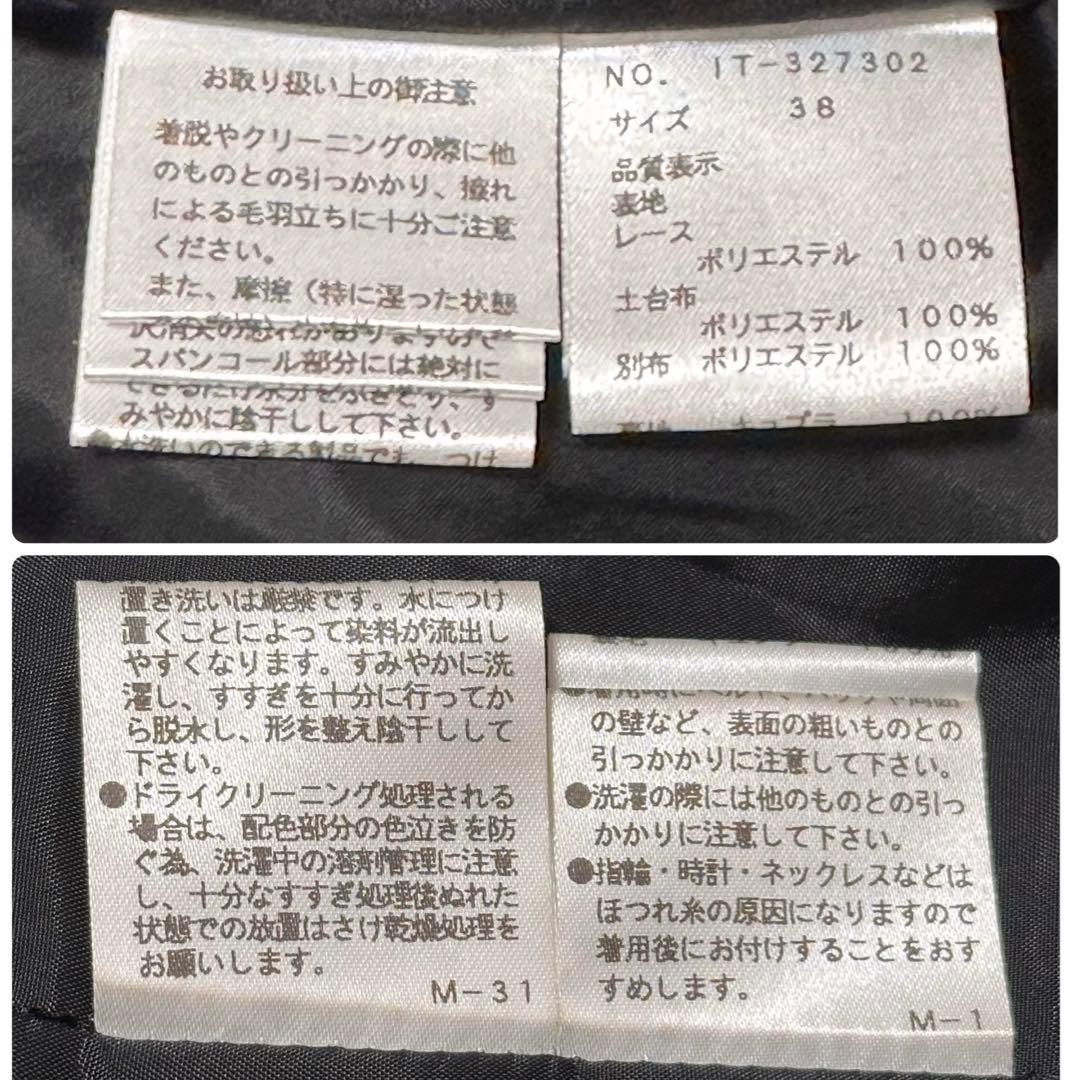 お取り扱い上の御注意
着脱やクリーニングの際に他
のものとの引っかかり、擦れ
による毛羽立ちに十分ご注意
ください。
また、摩擦（特に湿った状態
スパンコール部分には絶対に
みやかに陰干しして下さい。
水洗いのできる製品でも、つけ
NO. IT-327302
サイズ 38
品質表示
表地
レース
ポリエステル 100%
土台布
ポリエステル 100%
別布 ポリエステル 100%
裏地 キュプラ 100%
置き洗いは厳禁です。水につけ
置くことによって染料が流出し
やすくなります。すみやかに洗
濯し、すすぎを十分に行ってか
ら脱水し、形を整え陰干しして
下さい。
●ドライクリーニング処理される
場合は、配色部分の色泣きを防
ぐ為、洗濯中の溶剤管理に注意
し、十分なすすぎ処理後ぬれた
状態での放置はさけ乾燥処理を
お願いします。
M-31
の壁など、表面の粗いものとの
引っかかりに注意して下さい。
●洗濯の際には他のものとの引っ
かかりに注意して下さい。
●指輪・時計・ネックレスなどは
ほつれ糸の原因になりますので
着用後にお付けすることをおす
すめします。
M-1